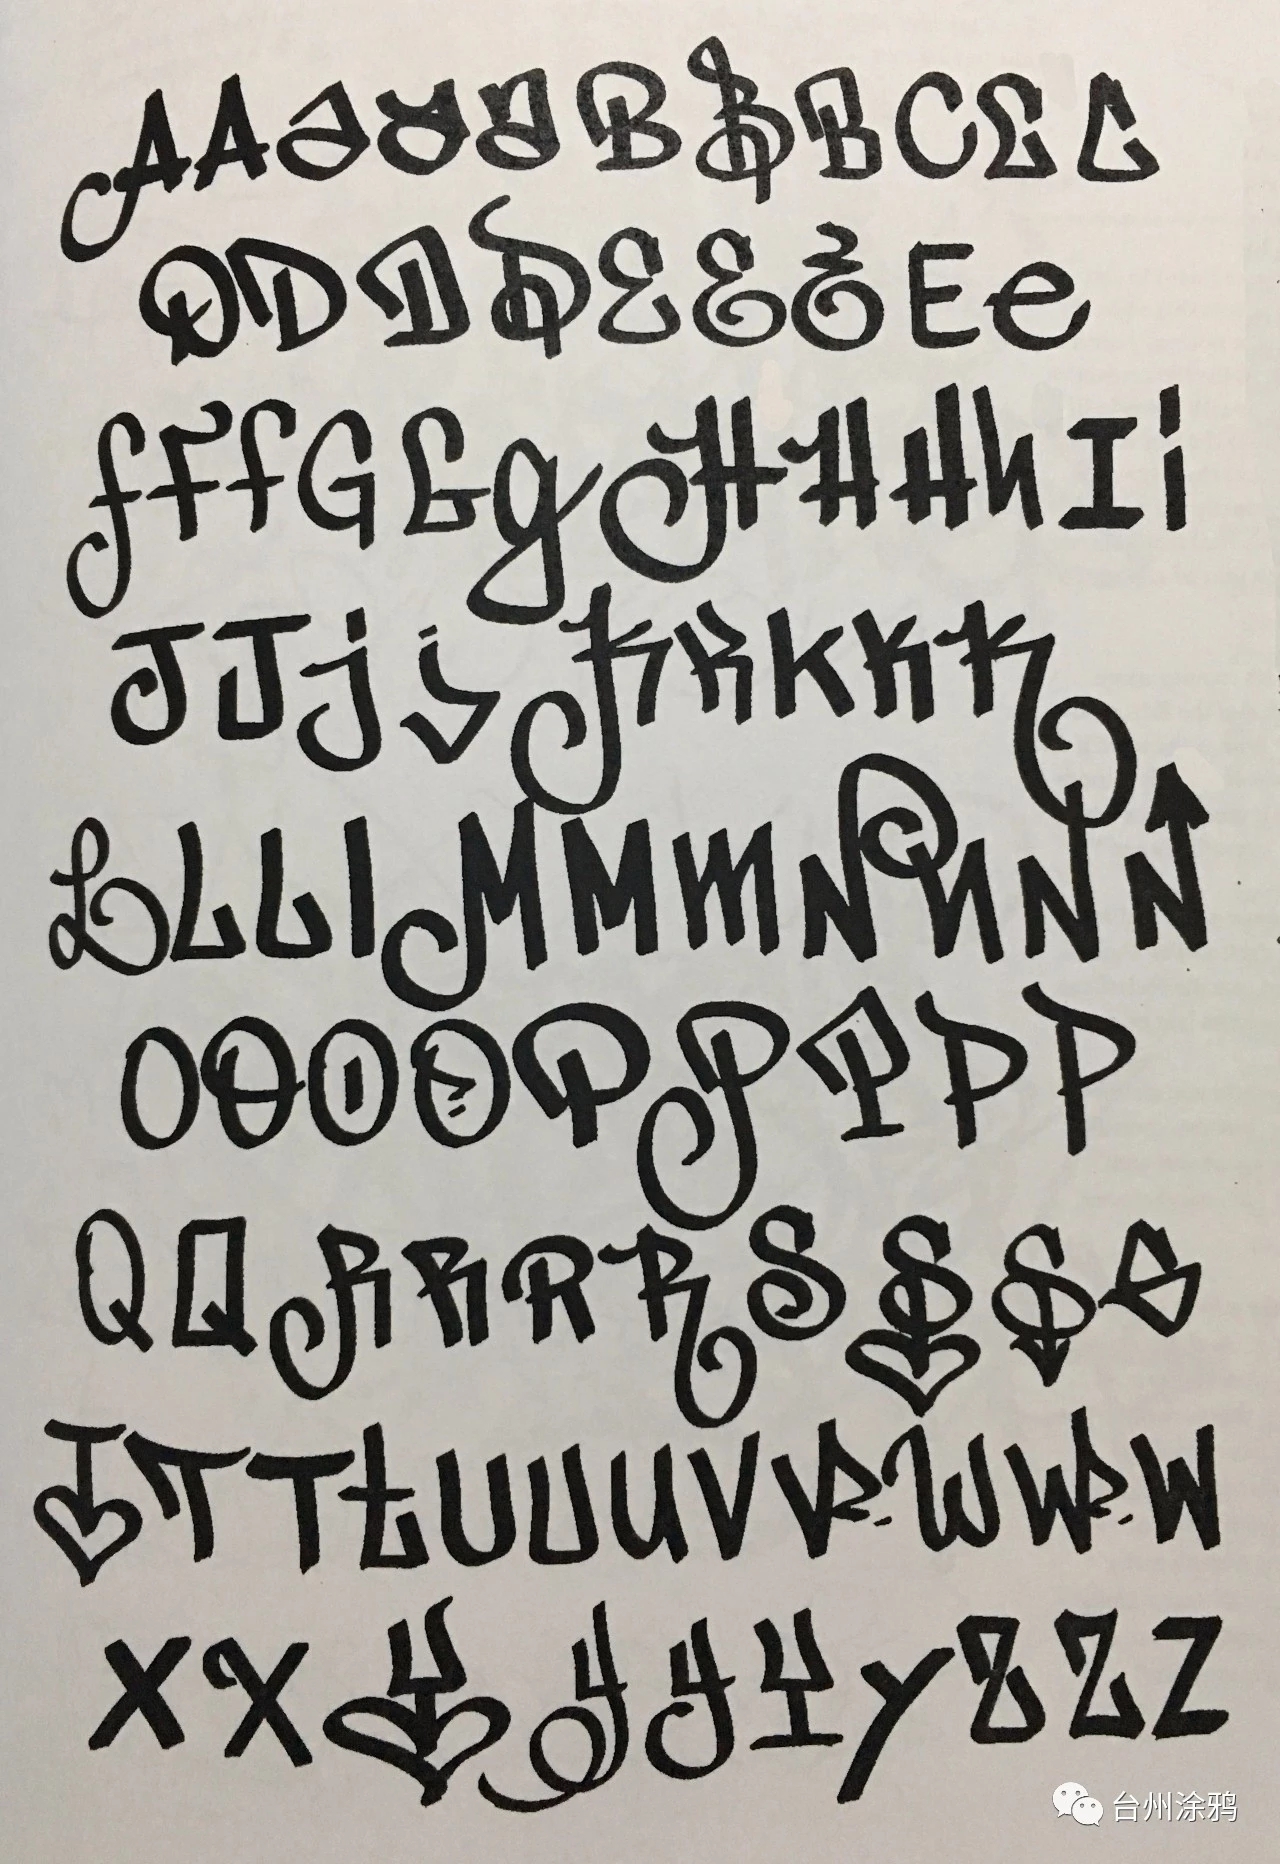 AAaaaBBBCCC
DDDDEEEEe
fFfGGgHHHhIi
JJjjKKKKK
LLLlMMmNNNN
OOOOPPPPP
QQRRRRSSSS
TTTtUUuVVWWW
XXYyyYyZZZ
台州涂鸦